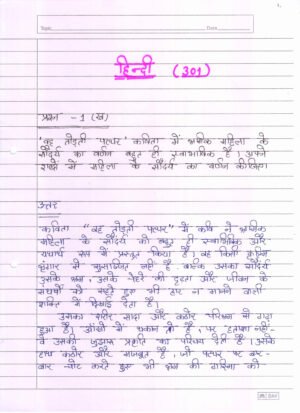 Topic
Date
हिन्दी (301)
प्रश्न -1 (ख)
'वह तोड़ती पत्थर' कविता में श्रमिक महिला के
सौंदर्य का वर्णन बहुत ही स्वाभाविक है। अपने
शब्दों में महिला के सौंदर्य का वर्णन कीजिए।
उत्तर
कविता "वह तोड़ती पत्थर" में कवि ने श्रमिक
महिला के सौंदर्य को बहुत ही स्वाभाविक और
यथार्थ रूप में प्रस्तुत किया है। वह किसी कृत्रिम
श्रृंगार से सुसज्जित नहीं है, बल्कि उसका सौंदर्य
उसके श्रम, उसके चेहरे की दृढ़ता और जीवन के
संघर्षों से लड़ते हुए भी हार न मानने वाली
शक्ति में दिखाई देता है।
उसका शरीर सादा और कठोर परिश्रम से गढ़ा
हुआ है। आँखों में थकान तो है, पर हताशा नहीं-
वे उसकी जुझारू प्रवृत्ति का परिचय देती हैं। उसके
हाथ कठोर और मजबूत हैं, जो पत्थर पर बार-
बार चोट करते हुए भी श्रम की गरिमा को